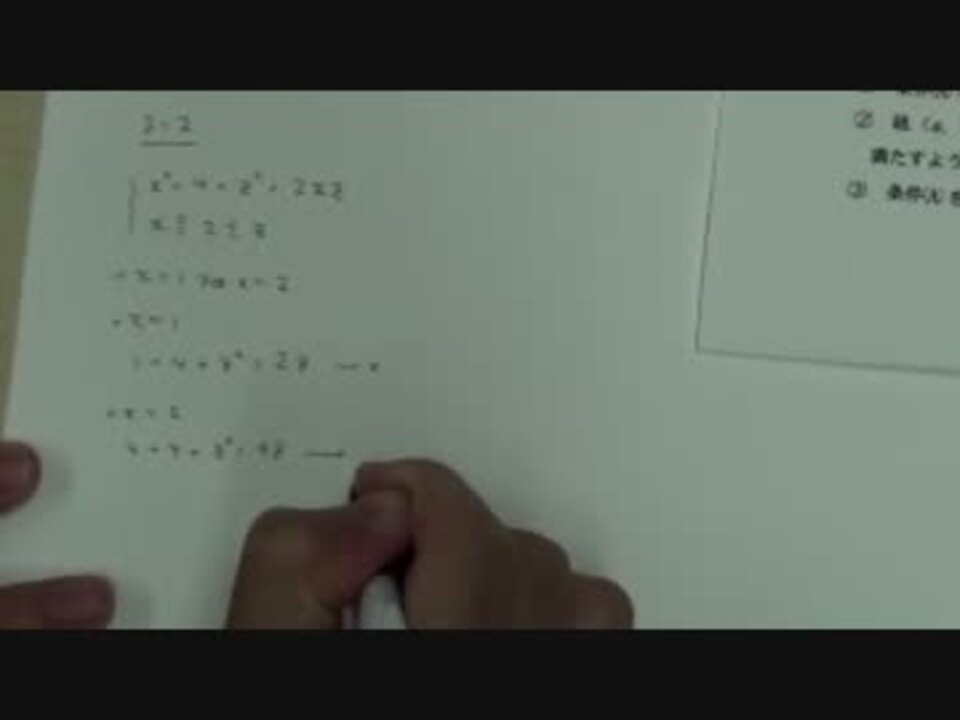 y=2
x²+4+z²=2xz
x≦2≦z
x=1 or x=2
・x=1
1+4+z²=2z
・x=2
4+4+z²=4z
② 組(a,
満たすよう
③ 条件(A)を